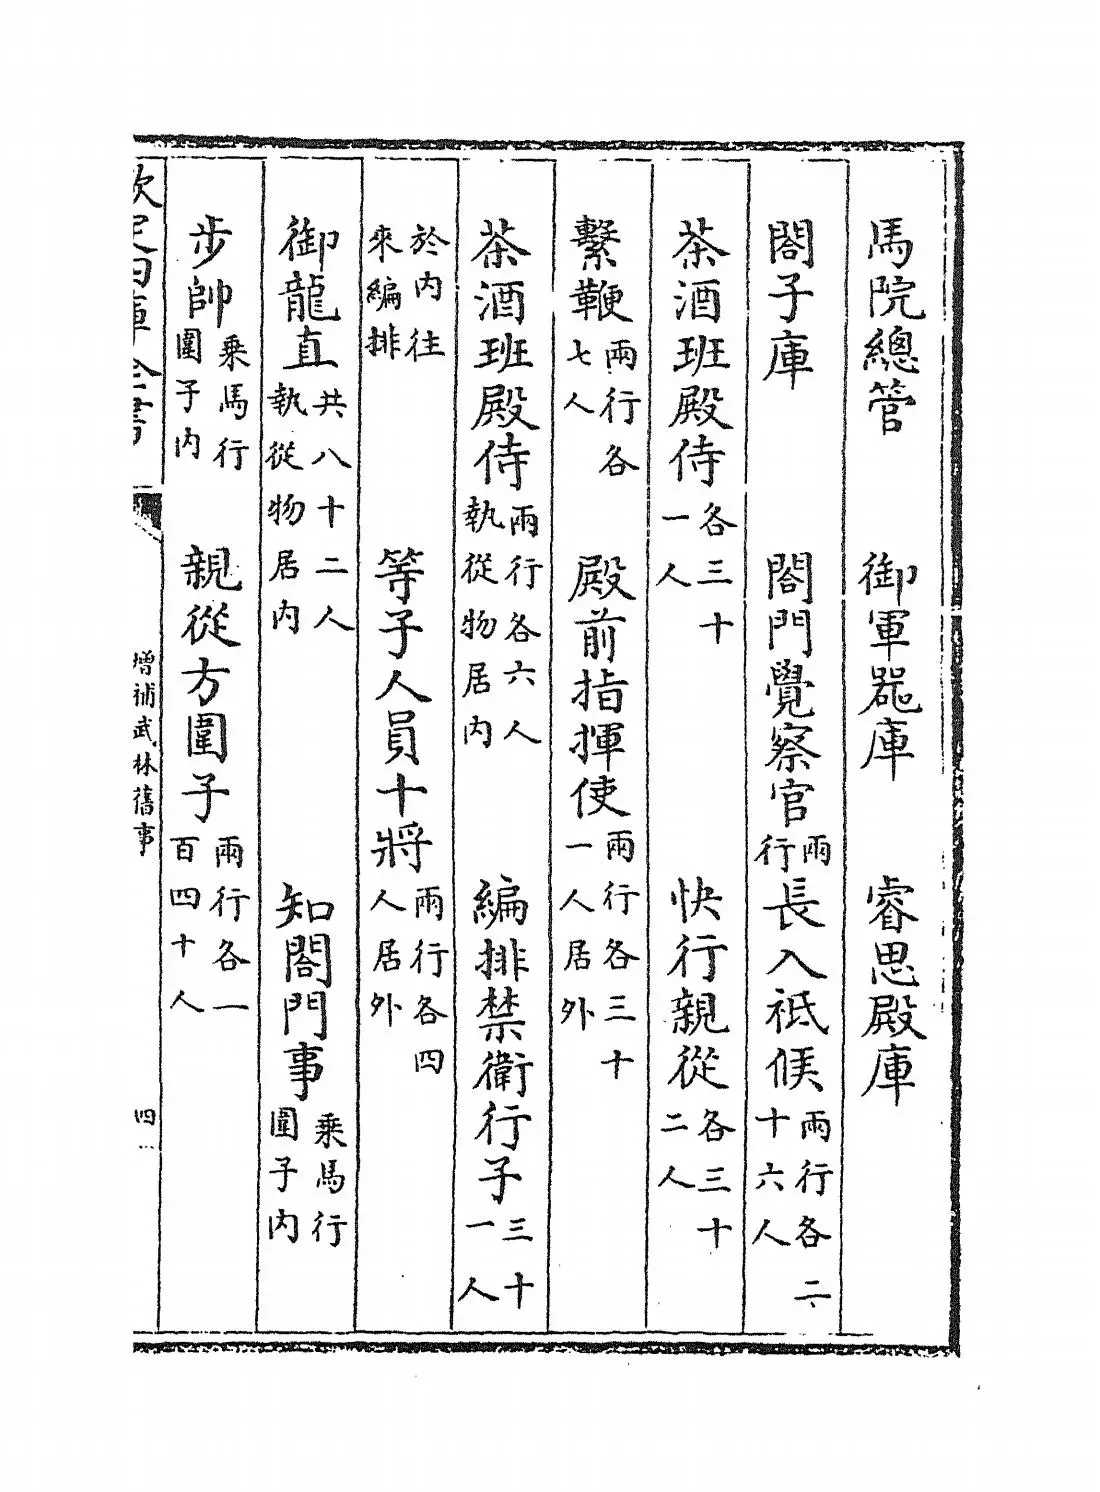 馬院總管　御軍器庫　睿思殿庫
閤子庫　閤門覺察官兩行長入祗候兩行各二十六人
茶酒班殿侍各三十一人　快行親從各三十二人
繫鞭兩行各七人　殿前指揮使兩行各三十一人居外
茶酒班殿侍兩行各六人執從物居内　編排禁衛行子三十一人
於内往來編排　等子人員十將兩行各四人居外
御龍直共八十二人執從物居内　知閤門事乘馬行圍子内
步帥乘馬行圍子内　親從方圍子兩行各一百四十人
欽定四庫全書　增補武林舊事　四